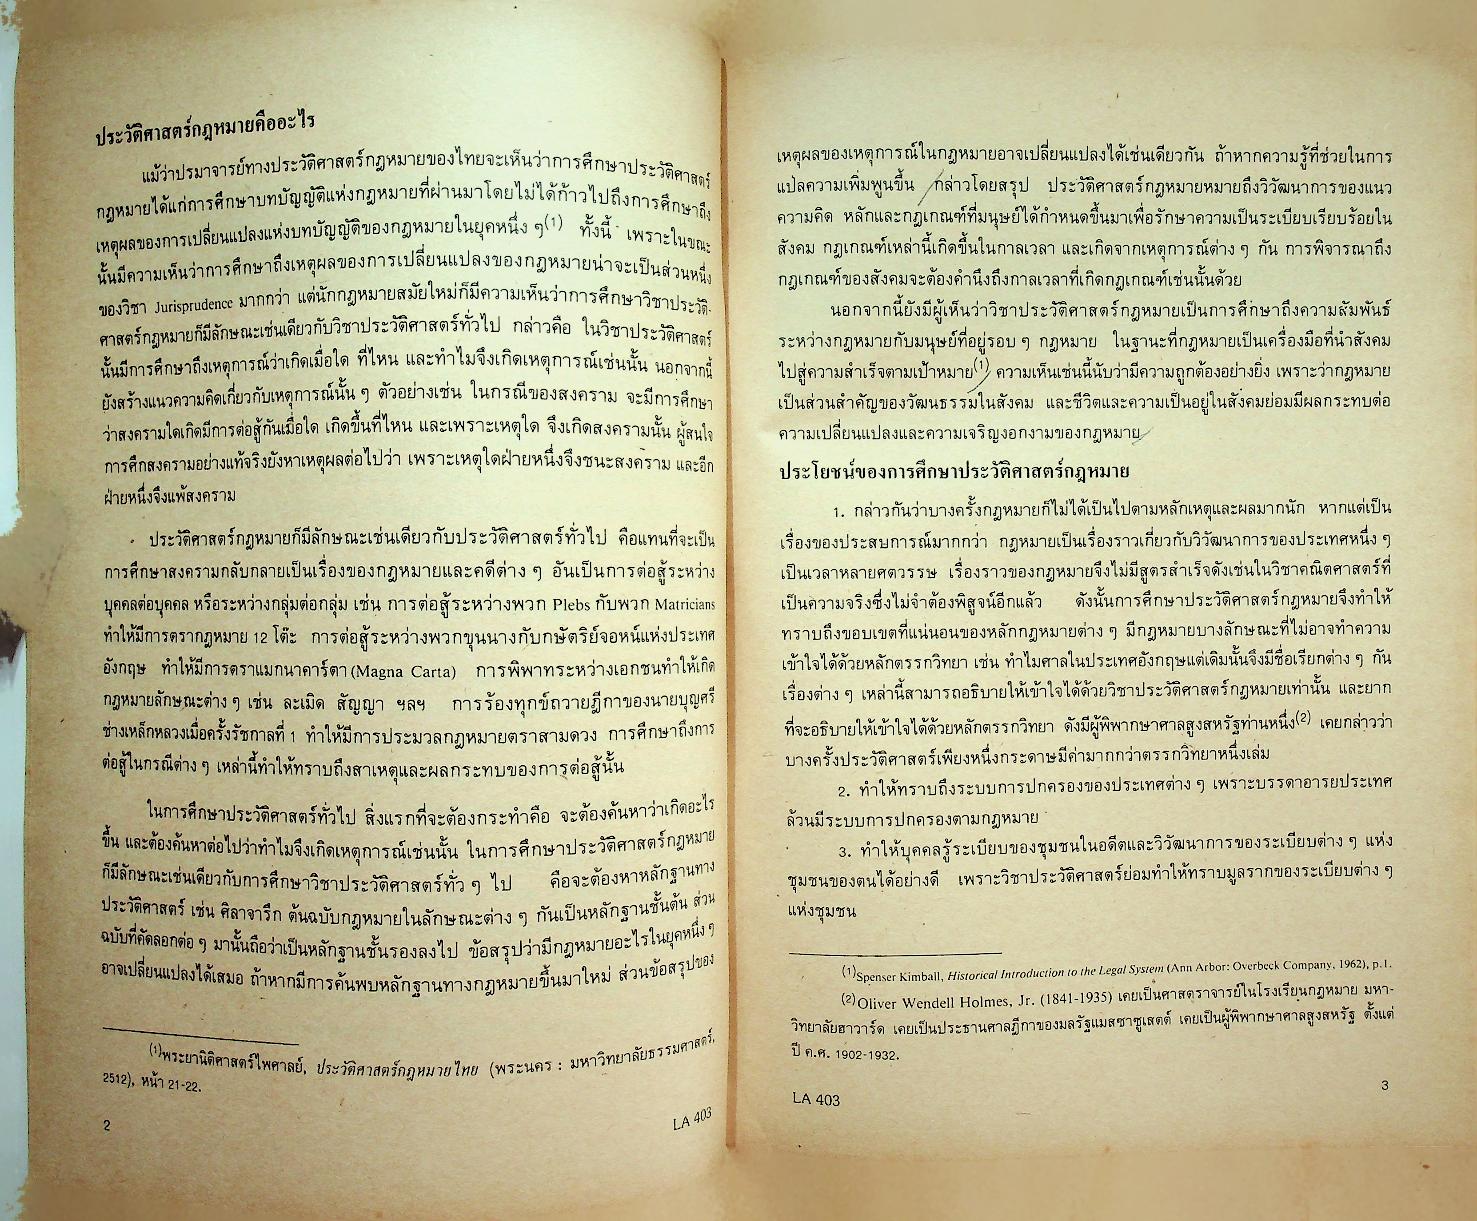 ประวัติศาสตร์กฎหมายคืออะไร
แม้ว่าปรมาจารย์ทางประวัติศาสตร์กฎหมายของไทยจะเห็นว่าการศึกษาประวัติศาสตร์
กฎหมายได้แก่การศึกษาบทบัญญัติแห่งกฎหมายที่ผ่านมาโดยไม่ได้ก้าวไปถึงการศึกษาถึง
เหตุผลของการเปลี่ยนแปลงแห่งบทบัญญัติของกฎหมายในยุคหนึ่ง ๆ(1) ทั้งนี้ เพราะในขณะ
นั้นมีความเห็นว่าการศึกษาถึงเหตุผลของการเปลี่ยนแปลงของกฎหมายน่าจะเป็นส่วนหนึ่ง
ของวิชา Jurisprudence มากกว่า แต่นักกฎหมายสมัยใหม่ก็มีความเห็นว่าการศึกษาวิชาประวัติ-
ศาสตร์กฎหมายก็มีลักษณะเช่นเดียวกับวิชาประวัติศาสตร์ทั่วไป กล่าวคือ ในวิชาประวัติศาสตร์
นั้นมีการศึกษาถึงเหตุการณ์ว่าเกิดเมื่อใด ที่ไหน และทำไมจึงเกิดเหตุการณ์เช่นนั้น นอกจากนี้
ยังสร้างแนวความคิดเกี่ยวกับเหตุการณ์นั้น ๆ ตัวอย่างเช่น ในกรณีของสงคราม จะมีการศึกษา
ว่าสงครามใดเกิดมีการต่อสู้กันเมื่อใด เกิดขึ้นที่ไหน และเพราะเหตุใด จึงเกิดสงครามนั้น ผู้สนใจ
การศึกสงครามอย่างแท้จริงยังหาเหตุผลต่อไปว่า เพราะเหตุใดฝ่ายหนึ่งจึงชนะสงคราม และอีก
ฝ่ายหนึ่งจึงแพ้สงคราม
ประวัติศาสตร์กฎหมายก็มีลักษณะเช่นเดียวกับประวัติศาสตร์ทั่วไป คือแทนที่จะเป็น
การศึกษาสงครามกลับกลายเป็นเรื่องของกฎหมายและคดีต่าง ๆ อันเป็นการต่อสู้ระหว่าง
บุคคลต่อบุคคล หรือระหว่างกลุ่มต่อกลุ่ม เช่น การต่อสู้ระหว่างพวก Plebs กับพวก Matricians
ทำให้มีการตรากฎหมาย 12 โต๊ะ การต่อสู้ระหว่างพวกขุนนางกับกษัตริย์จอหน์แห่งประเทศ
อังกฤษ ทำให้มีการตราแมกนาคาร์ตา (Magna Carta) การพิพาทระหว่างเอกชนทำให้เกิด
กฎหมายลักษณะต่าง ๆ เช่น ละเมิด สัญญา ฯลฯ การร้องทุกข์ถวายฎีกาของนายบุญศรี
ช่างเหล็กหลวงเมื่อครั้งรัชกาลที่ 1 ทำให้มีการประมวลกฎหมายตราสามดวง การศึกษาถึงการ
ต่อสู้ในกรณีต่าง ๆ เหล่านี้ทำให้ทราบถึงสาเหตุและผลกระทบของการต่อสู้นั้น
ในการศึกษาประวัติศาสตร์ทั่วไป สิ่งแรกที่จะต้องกระทำคือ จะต้องค้นหาว่าเกิดอะไร
ขึ้น และต้องค้นหาต่อไปว่าทำไมจึงเกิดเหตุการณ์เช่นนั้น ในการศึกษาประวัติศาสตร์กฎหมาย
ก็มีลักษณะเช่นเดียวกับการศึกษาวิชาประวัติศาสตร์ทั่ว ๆ ไป คือจะต้องหาหลักฐานทาง
ประวัติศาสตร์ เช่น ศิลาจารึก ต้นฉบับกฎหมายในลักษณะต่าง ๆ กันเป็นหลักฐานชั้นต้น ส่วน
ฉบับที่คัดลอกต่อ ๆ มานั้นถือว่าเป็นหลักฐานชั้นรองลงไป ข้อสรุปว่ามีกฎหมายอะไรในยุคหนึ่ง ๆ
อาจเปลี่ยนแปลงได้เสมอ ถ้าหากมีการค้นพบหลักฐานทางกฎหมายขึ้นมาใหม่ ส่วนข้อสรุปของ
(1)พระยานิติศาสตร์ไพศาลย์, ประวัติศาสตร์กฎหมายไทย (พระนคร : มหาวิทยาลัยธรรมศาสตร์,
2512), หน้า 21-22.
2
LA 403
เหตุผลของเหตุการณ์ในกฎหมายอาจเปลี่ยนแปลงได้เช่นเดียวกัน ถ้าหากความรู้ที่ช่วยในการ
แปลความเพิ่มพูนขึ้น กล่าวโดยสรุป ประวัติศาสตร์กฎหมายหมายถึงวิวัฒนาการของแนว
ความคิด หลักและกฎเกณฑ์ที่มนุษย์ได้กำหนดขึ้นมาเพื่อรักษาความเป็นระเบียบเรียบร้อยใน
สังคม กฎเกณฑ์เหล่านี้เกิดขึ้นในกาลเวลา และเกิดจากเหตุการณ์ต่าง ๆ กัน การพิจารณาถึง
กฎเกณฑ์ของสังคมจะต้องคำนึงถึงกาลเวลาที่เกิดกฎเกณฑ์เช่นนั้นด้วย
นอกจากนี้ยังมีผู้เห็นว่าวิชาประวัติศาสตร์กฎหมายเป็นการศึกษาถึงความสัมพันธ์
ระหว่างกฎหมายกับมนุษย์ที่อยู่รอบ ๆ กฎหมาย ในฐานะที่กฎหมายเป็นเครื่องมือที่นำสังคม
ไปสู่ความสำเร็จตามเป้าหมาย(1) ความเห็นเช่นนี้นับว่ามีความถูกต้องอย่างยิ่ง เพราะว่ากฎหมาย
เป็นส่วนสำคัญของวัฒนธรรมในสังคม และชีวิตและความเป็นอยู่ในสังคมย่อมมีผลกระทบต่อ
ความเปลี่ยนแปลงและความเจริญงอกงามของกฎหมาย
ประโยชน์ของการศึกษาประวัติศาสตร์กฎหมาย
1. กล่าวกันว่าบางครั้งกฎหมายก็ไม่ได้เป็นไปตามหลักเหตุและผลมากนัก หากแต่เป็น
เรื่องของประสบการณ์มากกว่า กฎหมายเป็นเรื่องราวเกี่ยวกับวิวัฒนาการของประเทศหนึ่ง ๆ
เป็นเวลาหลายศตวรรษ เรื่องราวของกฎหมายจึงไม่มีสูตรสำเร็จดังเช่นในวิชาคณิตศาสตร์ที่
เป็นความจริงซึ่งไม่จำต้องพิสูจน์อีกแล้ว ดังนั้นการศึกษาประวัติศาสตร์กฎหมายจึงทำให้
ทราบถึงขอบเขตที่แน่นอนของหลักกฎหมายต่าง ๆ มีกฎหมายบางลักษณะที่ไม่อาจทำความ
เข้าใจได้ด้วยหลักตรรกวิทยา เช่น ทำไมศาลในประเทศอังกฤษแต่เดิมนั้นจึงมีชื่อเรียกต่าง ๆ กัน
เรื่องต่าง ๆ เหล่านี้สามารถอธิบายให้เข้าใจได้ด้วยวิชาประวัติศาสตร์กฎหมายเท่านั้น และยาก
ที่จะอธิบายให้เข้าใจได้ด้วยหลักตรรกวิทยา ดังมีผู้พิพากษาศาลสูงสหรัฐท่านหนึ่ง(2) เคยกล่าวว่า
บางครั้งประวัติศาสตร์เพียงหนึ่งกระดาษมีค่ามากกว่าตรรกวิทยาหนึ่งเล่ม
2. ทำให้ทราบถึงระบบการปกครองของประเทศต่าง ๆ เพราะบรรดาอารยประเทศ
ล้วนมีระบบการปกครองตามกฎหมาย
3. ทำให้บุคคลรู้ระเบียบของชุมชนในอดีตและวิวัฒนาการของระเบียบต่าง ๆ แห่ง
ชุมชนของตนได้อย่างดี เพราะวิชาประวัติศาสตร์ย่อมทำให้ทราบมูลรากของระเบียบต่าง ๆ
แห่งชุมชน
(1)Spenser Kimball, Historical Introduction to the Legal System (Ann Arbor: Overbeck Company, 1962), p.1.
(2)Oliver Wendell Holmes, Jr. (1841-1935) เคยเป็นศาสตราจารย์ในโรงเรียนกฎหมาย มหา-
วิทยาลัยฮาวาร์ด เคยเป็นประธานศาลฎีกาของมลรัฐแมสซาชูเสตต์ เคยเป็นผู้พิพากษาศาลสูงสหรัฐ ตั้งแต่
ปี ค.ศ. 1902-1932.
LA 403
3